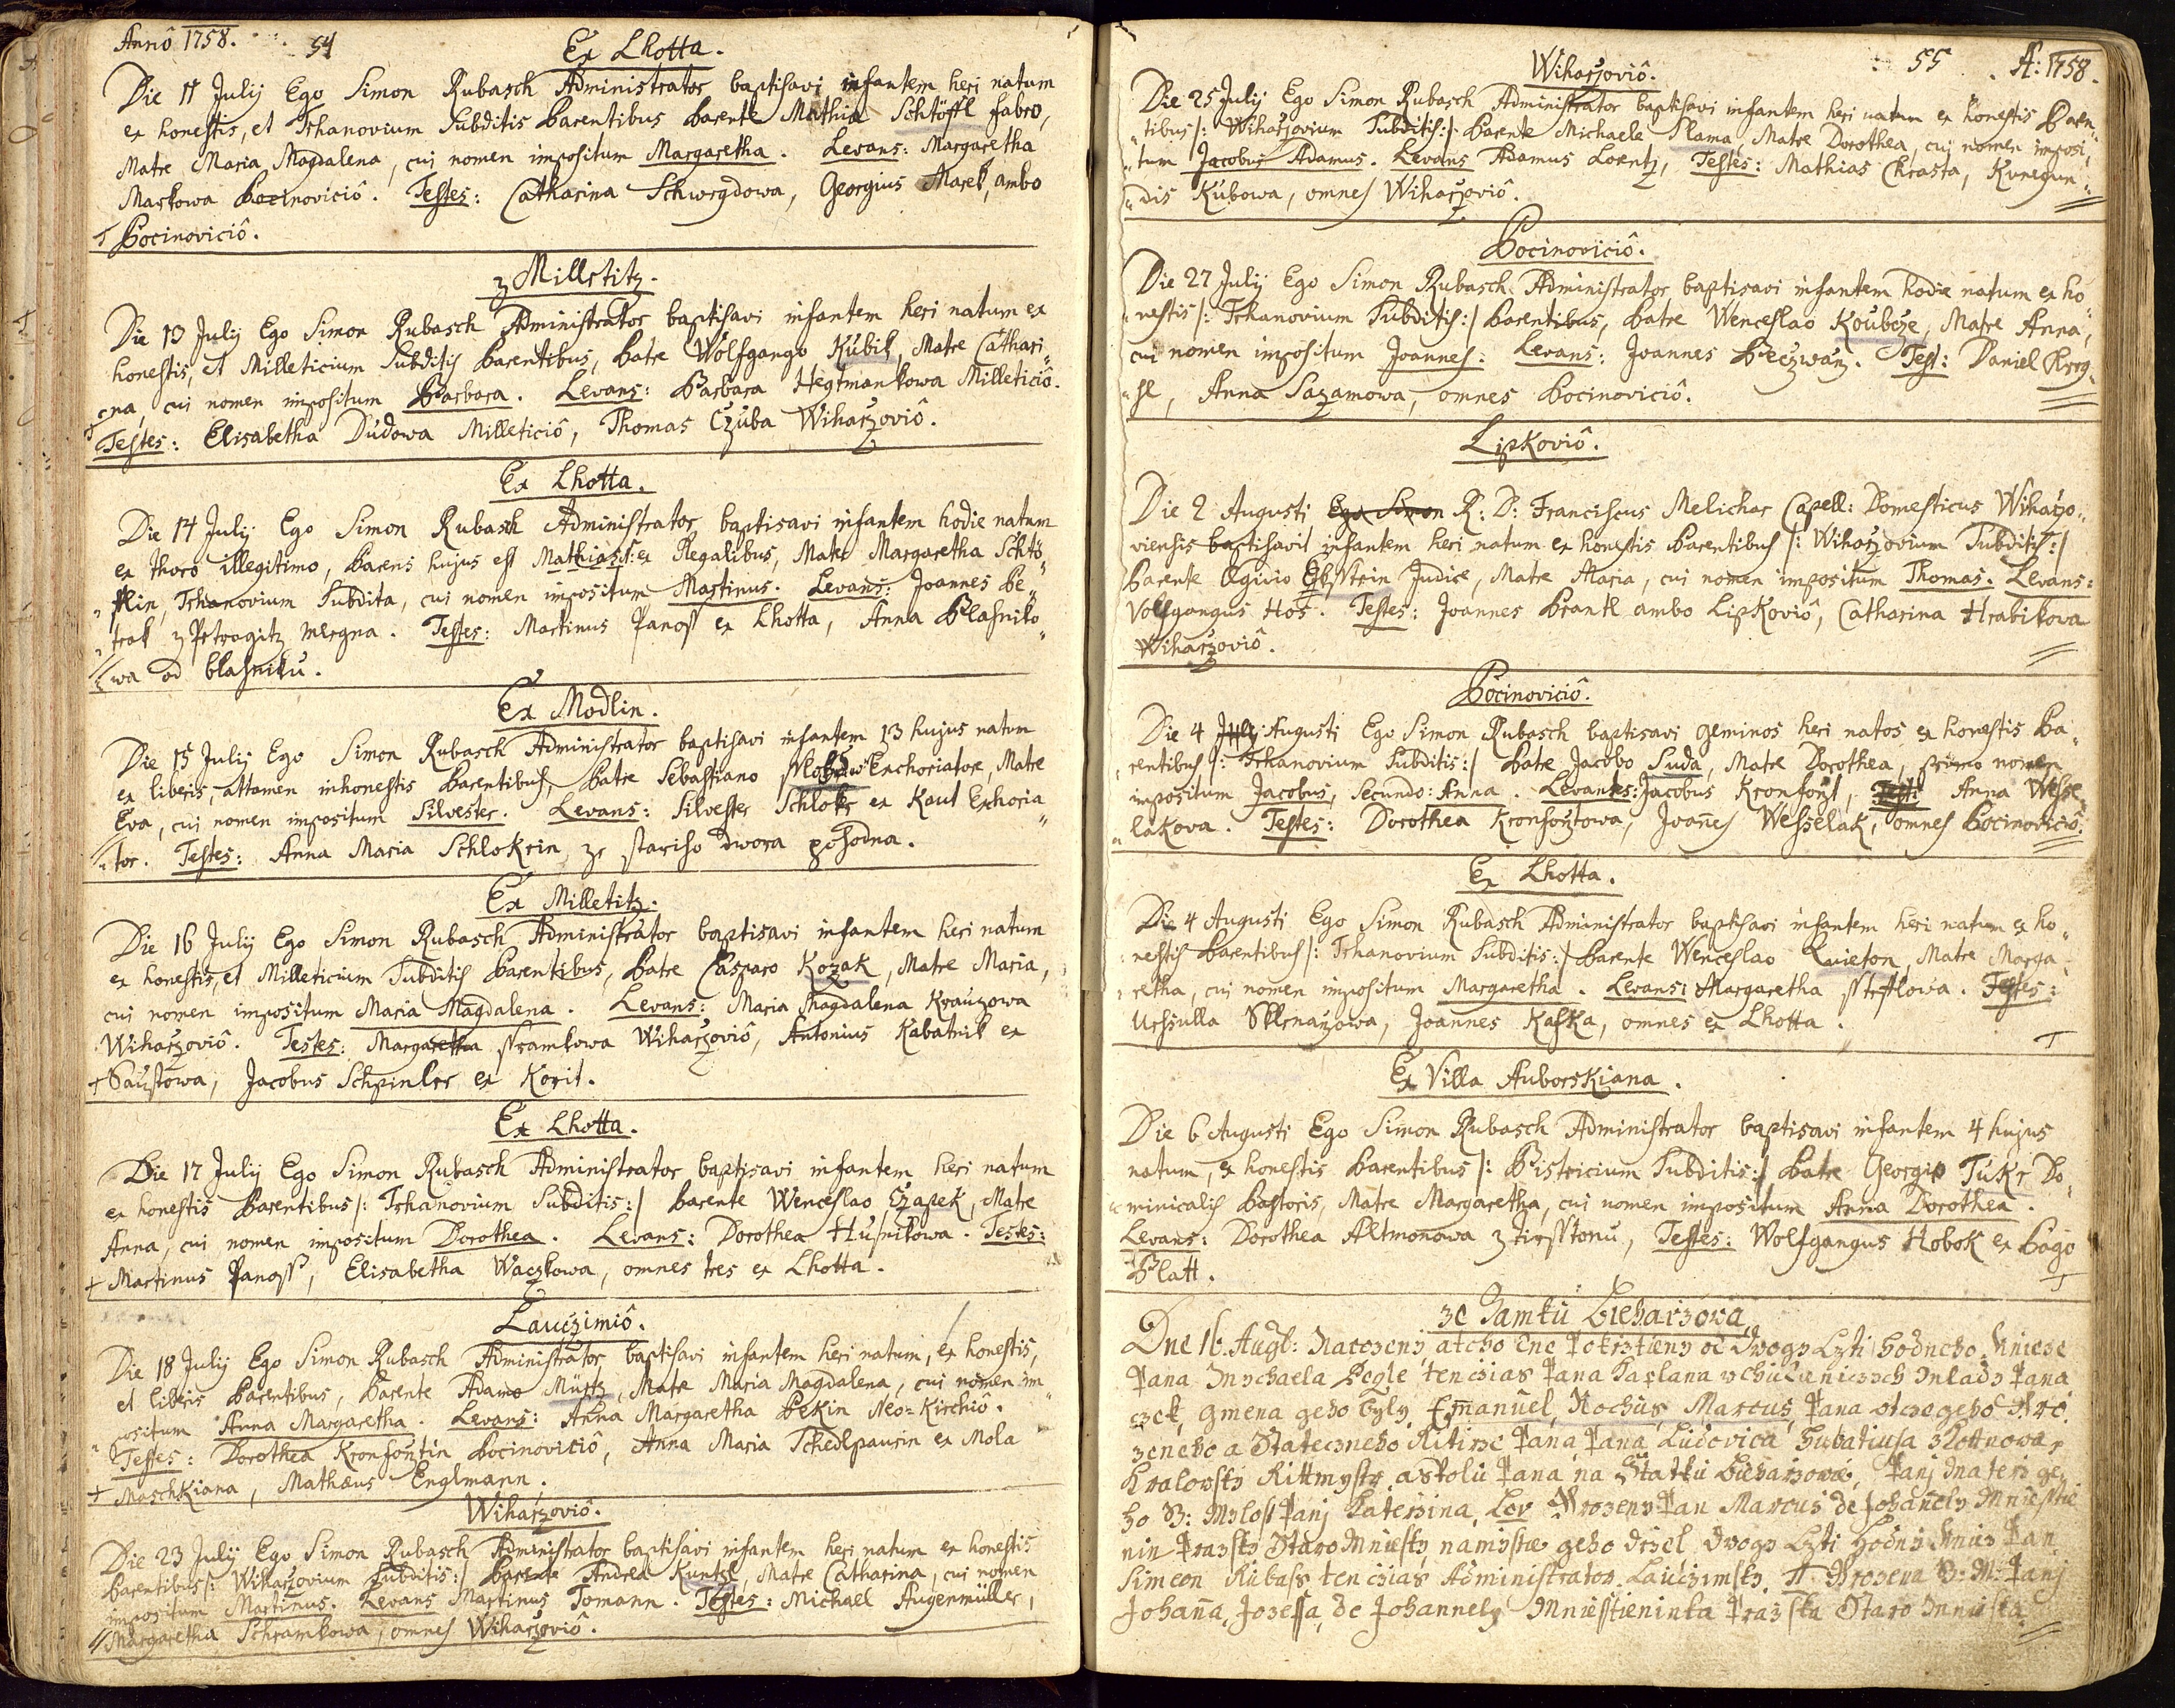 Annô 1758. 54
Ex Lhotta.
Die 11 July Ego Simon Rubasch Administrator baptisavi infantem heri natum
ex honestis, et Tshanovium Subditis Parentibus Parente Mathia Schtöffl fabro,
Matre Maria Magdalena, cui nomen impositum Margaretha. Levans: Margaretha
Markowa Bocinoviciô. Testes: Catharina Schwegdowa, Georgius Marek, ambo
Bocinoviciô.
z Milletitz.
Die 13 July Ego Simon Rubasch Administrator baptisavi infantem heri natum ex
honestis, et Milleticium Subditis Parentibus, Patre Wolfgango Kubik, Matre Cathari„
„na, cui nomen impositum Barbara. Levans: Barbara Hegtmankowa Milleticiô.
Testes: Elisabetha Dudowa Milleticiô, Thomas Czuba Wiharzoviô.
Ex Lhotta.
Die 14 July Ego Simon Rubasch Administrator baptisavi infantem hodie natum
ex thoro illegitimo, Parens hujus est Mathias ex Regalibus, Mater Margaretha Schtö„
„fflin, Tshanovium Subdita, cui nomen impositum Martinus. Levans: Joannes Pe„
„trak z Petrogitz mlegna. Testes: Martinus Panoss ex Lhotta, Anna Blasniko„
„wa od blasniku.
Ex Modlin.
Die 15 July Ego Simon Rubasch Administrator baptisavi infantem 13 hujus natum
ex liberis, attamen inhonestis Parentibus, Patre Sebastiano Enchoriatore, Matre
Eva, cui nomen impositum Silvester. Levans: Silvester Schloker ex Kaut Exhoria„
„tor. Testes: Anna Maria Schlokrin ze stariho dwora pohodna.
Ex Milletitz.
Die 16 July Ego Simon Rubasch Administrator baptisavi infantem heri natum
ex honestis, et Milleticium Subditis Parentibus, Patre Casparo Kozak, Matre Maria,
cui nomen impositum Maria Magdalena. Levans: Maria Magdalena Krauzowa
Wiharzoviô. Testes: Margaretha Sramkowa Wiharzoviô, Antonius Kabatnik ex
Saustowa, Jacobus Schpinler ex Korit.
Ex Lhotta.
Die 17 July Ego Simon Rubasch Administrator baptisavi infantem heri natum
ex honestis Parentibus /: Tshanovium Subditis :/ Parente Wenceslao Czapek, Matre
Anna, cui nomen impositum Dorothea. Levans: Dorothea Husnikowa. Testes:
Martinus Panoss, Elisabetha Waczkowa, omnes tres ex Lhotta.
Lauczimiô.
Die 18 July Ego Simon Rubasch Administrator baptisavi infantem heri natum, ex honestis,
et liberis Parentibus, Parente Adamo Mürtz, Matre Maria Magdalena, cui nomen im„
„positum Anna Margaretha. Levans: Anna Margaretha Pekin Neo-Kirchiô.
Testes: Dorothea Kronfontin Bocinoviciô, Anna Maria Schedlpaurin ex Mola
Maschkiana, Mathæus Englmann.
Wiharzoviô.
Die 23 July Ego Simon Rubasch Administrator baptisavi infantem heri natum ex honestis
Parentibus /: Wiharzovium Subditis :/ Parente Andrea Kuntzl, Matre Catharina, cui nomen
impositum Martinus. Levans Martinus Tomann. Testes: Michael Augenmüller,
Margaretha Schramkowa, omnes Wiharzoviô.
55 A: 1758.
Wiharzoviô.
Die 25 July Ego Simon Rubasch Administrator baptisavi infantem heri natum ex honestis Paren„
„tibus /: Wiharzovium Subditis :/ Parente Michaele Slama, Matre Dorothea, cui nomen imposi„
„tum Jacobus Adamus. Levans Adamus Lorentz, Testes: Mathias Chrasta, Kunegun„
„dis Kubowa, omnes Wiharzoviô.
Bocinoviciô.
Die 27 July Ego Simon Rubasch Administrator baptisavi infantem hodie natum ex ho„
„nestis /: Tshanovium Subditis :/ Parentibus, Patre Wenceslao Koubcze, Matre Anna,
cui nomen impositum Joannes: Levans: Joannes Beczwarz. Test: Daniel
Anna Sazamowa, omnes Bocinoviciô.
Lipkoviô.
Die 2 Augusti Ego Simon R: D: Franciscus Melichar Capell: Domesticus Wiharzo„
viensis baptisavit infantem heri natum ex honestis Parentibus /: Wiharzovium Subditis :/
Parente Ægidio Judice, Matre Maria, cui nomen impositum Thomas. Levans:
Volfgangus Hos. Testes: Joannes Brantl ambo Lipkoviô, Catharina Hrabikova
Wiharzoviô.
Bocinoviciô.
Die 4 July Augusti Ego Simon Rubasch baptisavi geminos heri natos ex honestis Pa„
„rentibus /: Tshanovium Subditis :/ Patre Jacobo Suda, Matre Dorothea, primo nomen
impositum Jacobus, Secundo: Anna. Levantes: Jacobus Kronfojt, Test: Anna Wesse„
„lakova. Testes: Dorothea Kronfojtowa, Joañes Wesselak, omnes Bocinoviciô.
Ex Lhotta.
Die 4 Augusti Ego Simon Rubasch Administrator baptisavi infantem heri natum ex ho„
„nestis Parentibus /: Tshanovium Subditis :/ Parente Wenceslao Kvieton, Matre Marga„
„retha, cui nomen impositum Margaretha. Levans: Margaretha Stefflowa. Testes:
Urssulla Sklenarzowa, Joannes Kaska, omnes ex Lhotta.
Ex Villa Auborskiana.
Die 6 Augusti Ego Simon Rubasch Administrator baptisavi infantem 4 hujus
natum, ex honestis Parentibus /: Bistricium Subditis :/ Patre Georgio Tukr Do„
„minicalis Pastoris, Matre Margaretha, cui nomen impositum Anna Dorothea.
Levans: Dorothea Altmonowa z tirsstonu, Testes: Wolfgangus Hobok ex Pago
Platt.
ze Zamku Bieharzowa
Dne 16. Augb: Narozeny a tého dne Pokrztieny od Dwogy Czti hodneho Knieze
Pana Mychaela Pegle ten czias Pana Kaplana Mlady Pana
czek, gmena geho byly Emanuel, Rochus, Marcus, Pana otcze geho Uro„
zeneho a Stateczneho Ritirze Pana Pana Ludovica Hubatiusa z Kottnowa,
Kralovsky Rittmystr, a spolu Pana na Statku Bieharzowie, Pani Materz ge„
ho B: Mylost Pani Katerzina, Lev Urozeny Pan Marcus de Johanely Mniesstie„
nin Prazsky Staro Mniesky, namistie geho drzel Dwogy Czti Hodny Kniez Pan
Simeon Rubass ten czias Administrator Lauczimsky. T. Urozena B: M: Pani
Johaña Josefa de Johannely Mniesstieninka Prazska Staro Mniestska